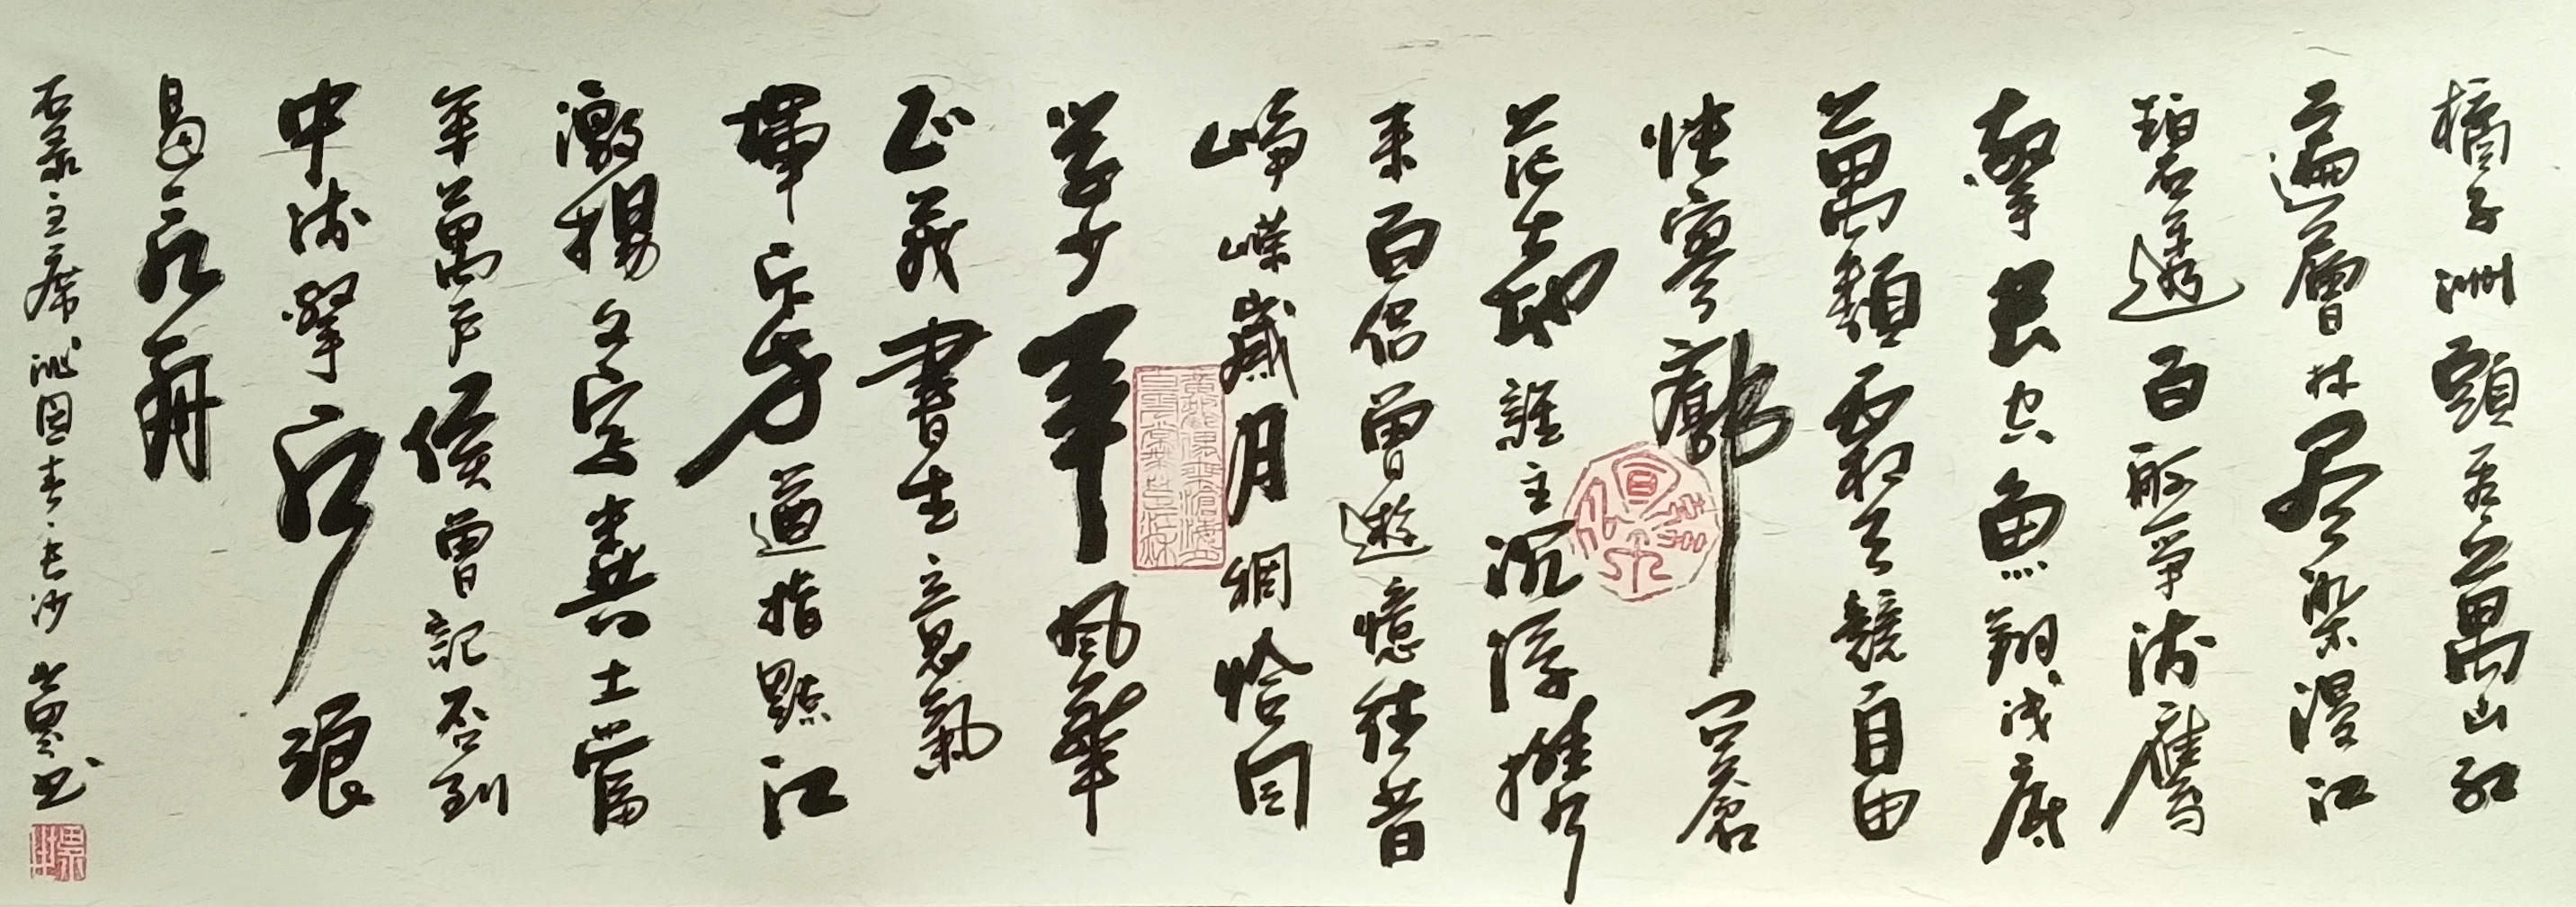 橘子洲頭看萬山紅
遍層林尽染漫江
碧透百舸爭流鷹
擊長空魚翔浅底
萬類霜天競自由
悵寥廓問蒼
茫大地誰主沉浮攜
來百侶曾遊憶往昔
崢嶸歲月稠恰同
学少年風華
正茂書生意氣
揮斥方遒指點江
激揚文字糞土當
年萬户侯曾記否到
中流擊水浪
遏飛舟
右录主席沁园春长沙 书